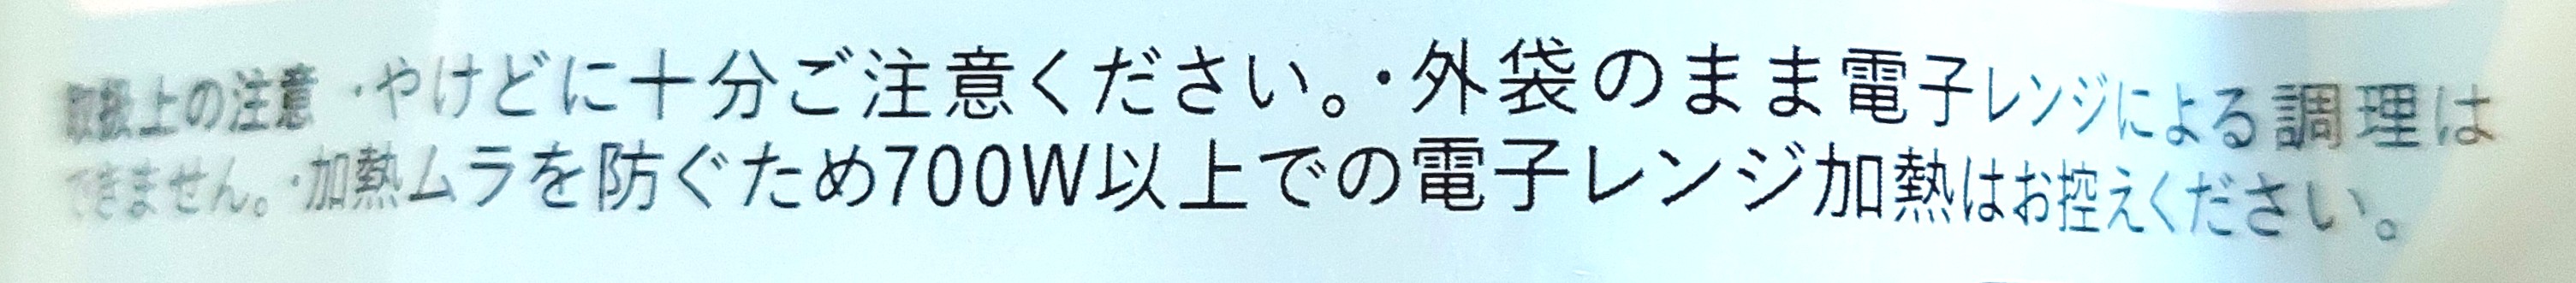 取扱上の注意 ・やけどに十分ご注意ください。・外袋のまま電子レンジによる調理は
できません。・加熱ムラを防ぐため700W以上での電子レンジ加熱はお控えください。